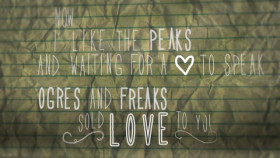 NOW
IS LIKE THE PEAKS
AND WAITING FOR A ♡ TO SPEAK
OGRES AND FREAKS
SOLD LOVE TO YOU